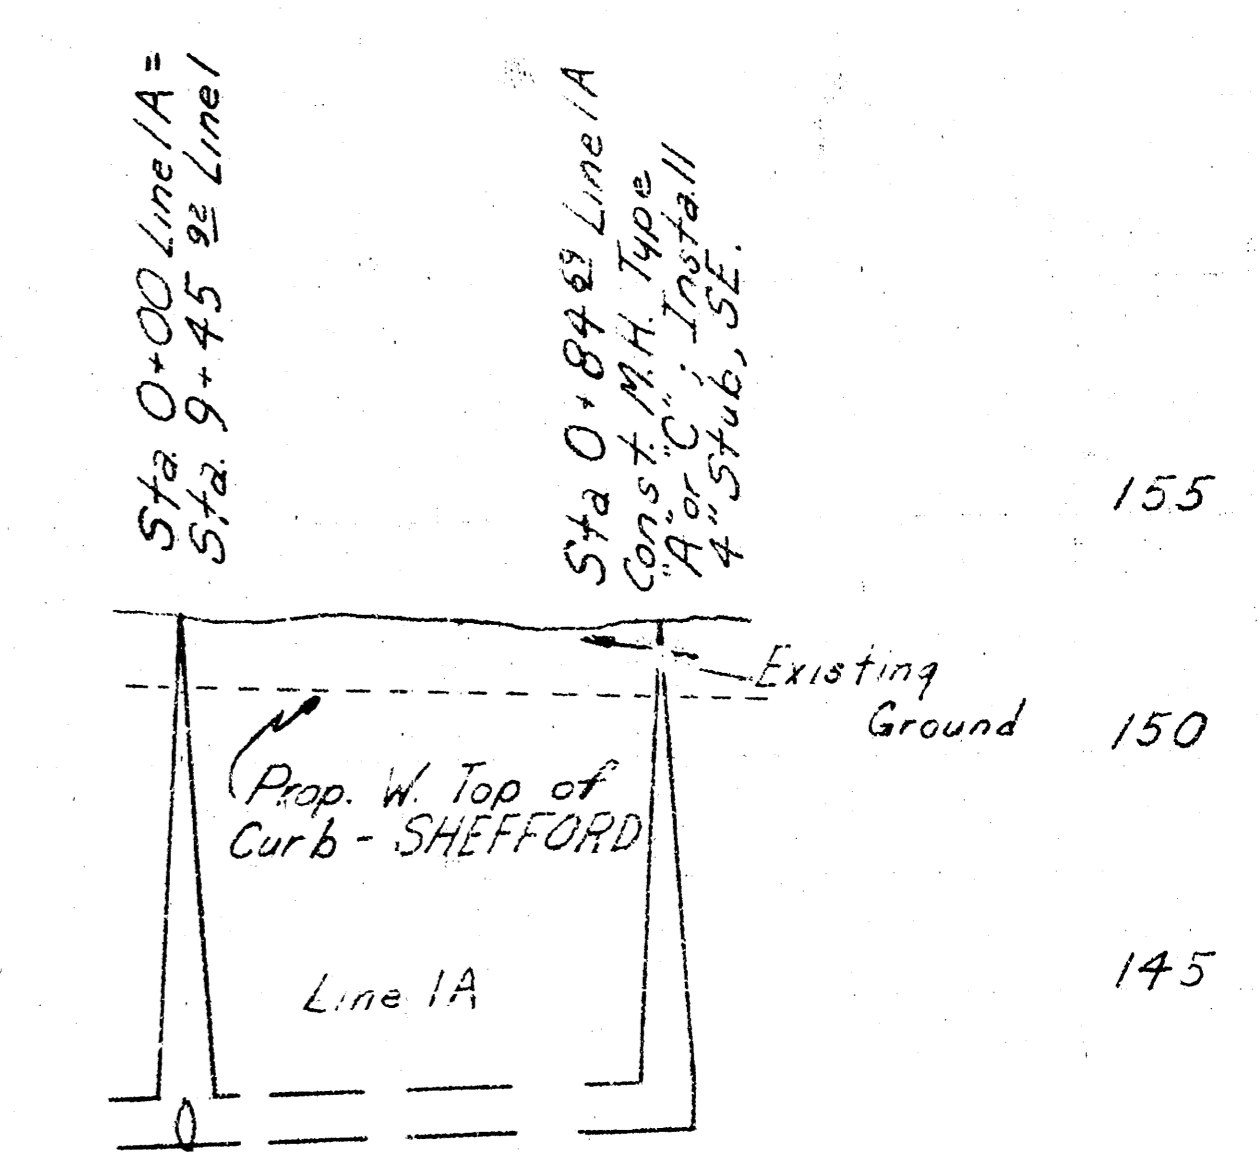 Sta 0+00 Line 1A =
Sta. 9+45 92 Line 1
Sta 0+84 69 Line 1A
Const. M.H. Type
"A" or "C"; Install
4" Stub, SE.
155
Existing
Ground
150
Prop. W. Top of
Curb - SHEFFORD
145
Line 1A